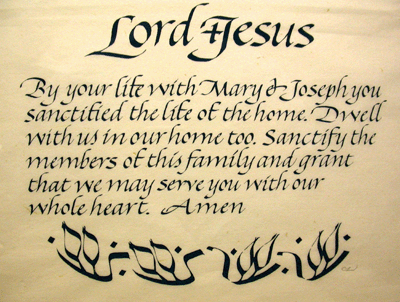 Lord Jesus
By your life with Mary & Joseph you
sanctified the life of the home. Dwell
with us in our home too. Sanctify the
members of this family and grant
that we may serve you with our
whole heart. Amen